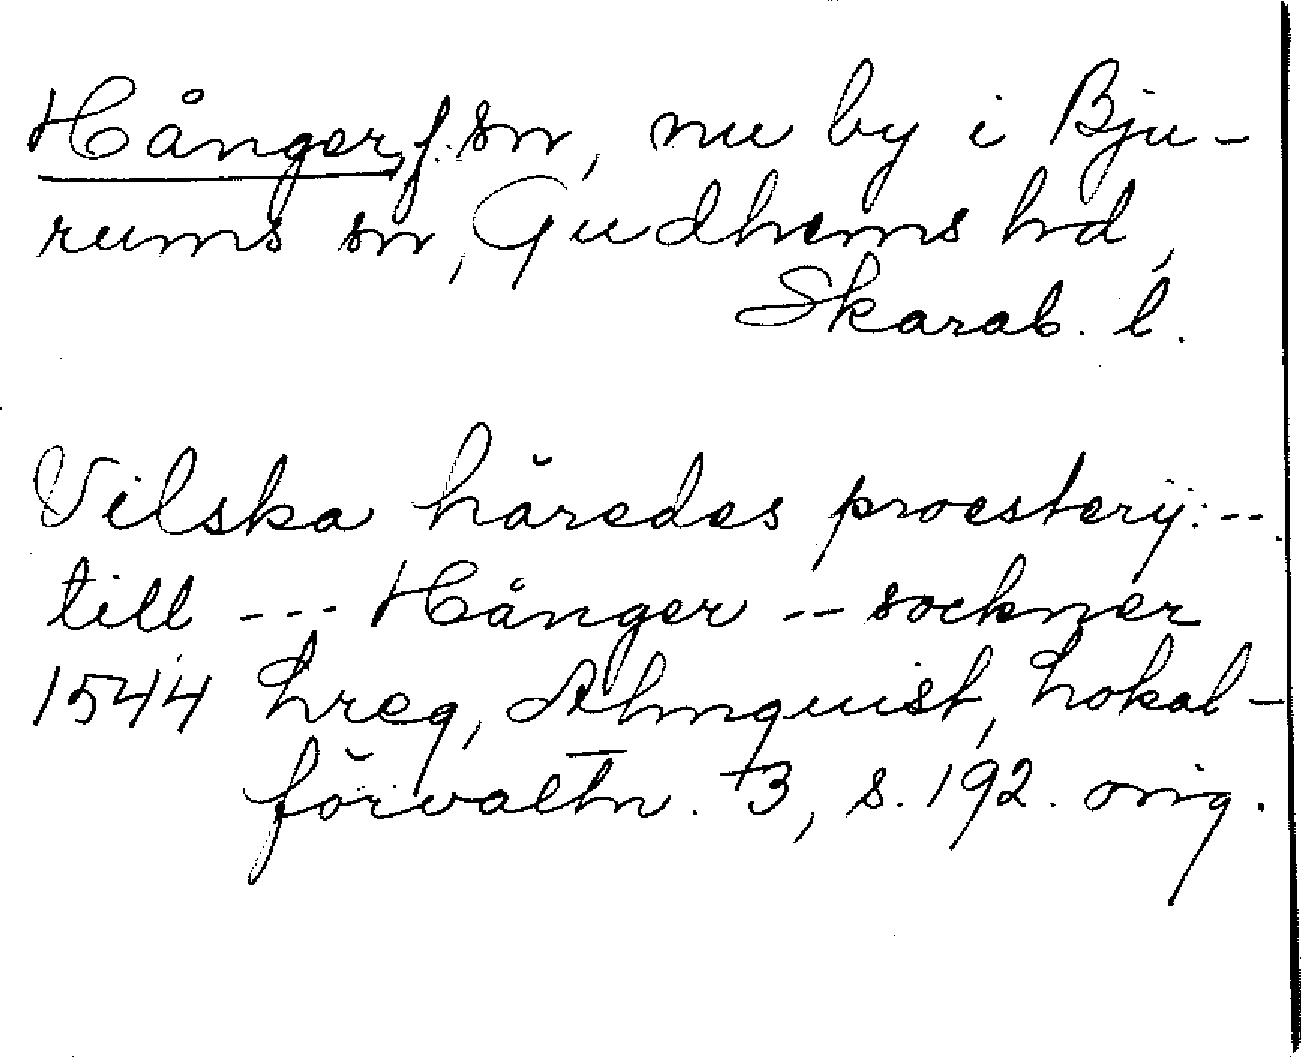 Hånger, f. sn, nu by i Bju-
rums sn, Gudhems hd,
Skarab. l.
Vilska håredes proestery: --
till --- Hånger -- sockner
1544 Lreg, Almquist, Lokal-
förvaltn. 3, s. 192. orig.